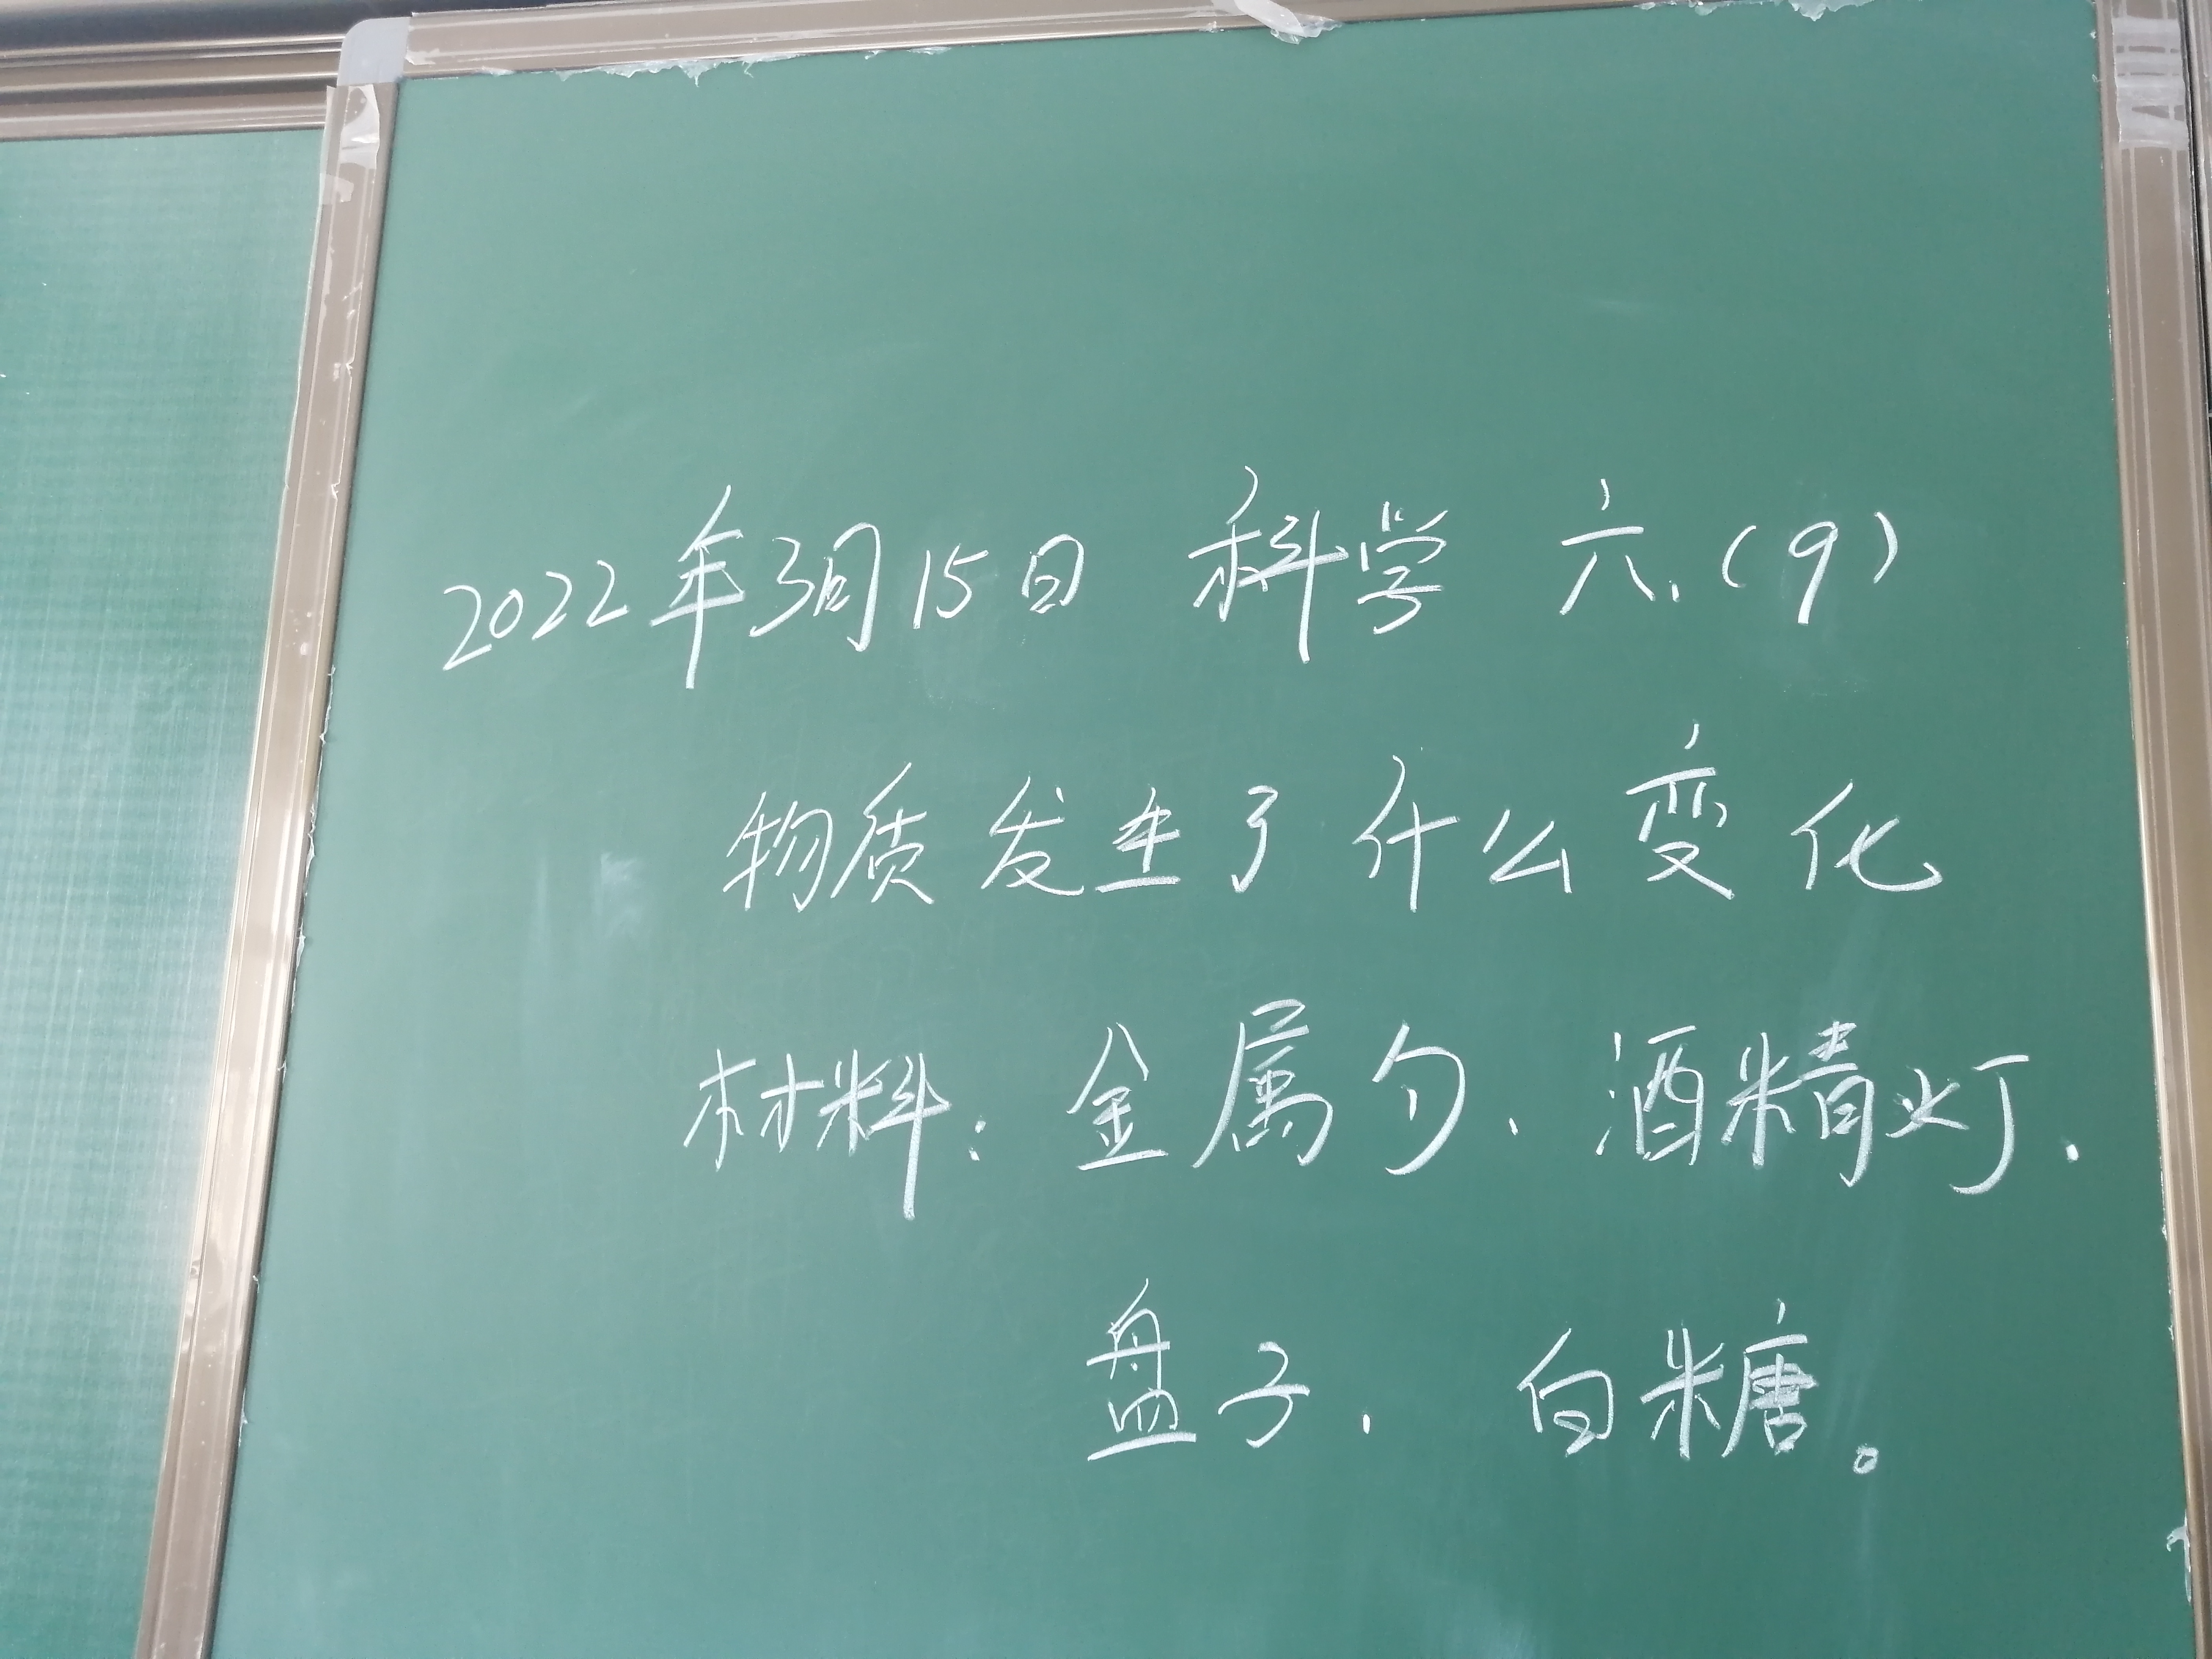 2022年3月15日 科学 六.(9)
物质发生了什么变化
材料：金属勺、酒精灯、
盘子、白糖。